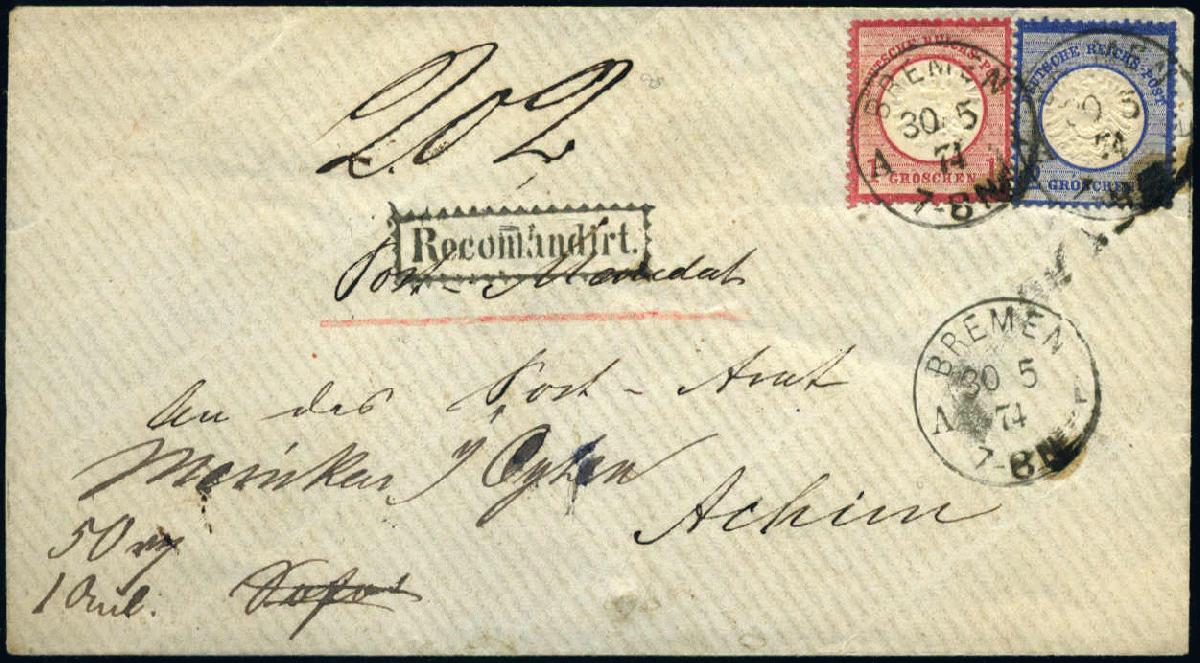 202
DEUTSCHE REICHS-POST
1 GROSCHEN 1
DEUTSCHE REICHS-POST
2 GROSCHEN
BREMEN
30 5
A 74
7-8 N
Recomandirt.
Post-Mandat
BREMEN
30 5
A 74
7-8 N
An das Post-Amt
Achim
50
1